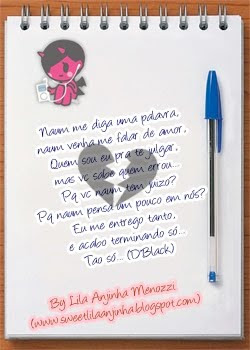 Naum me diga uma palavra,
naum venha me falar de amor,
Quem sou eu pra te julgar,
mas vc sabe quem errou...
Pq vc naum tem juizo?
Pq naum pensa um pouco em nós?
Eu me entrego tanto,
e acabo terminando só...
Tao só... (D'Black)
By Lila Anjinha Menozzi
(www.sweetlilaanjinha.blogspot.com)